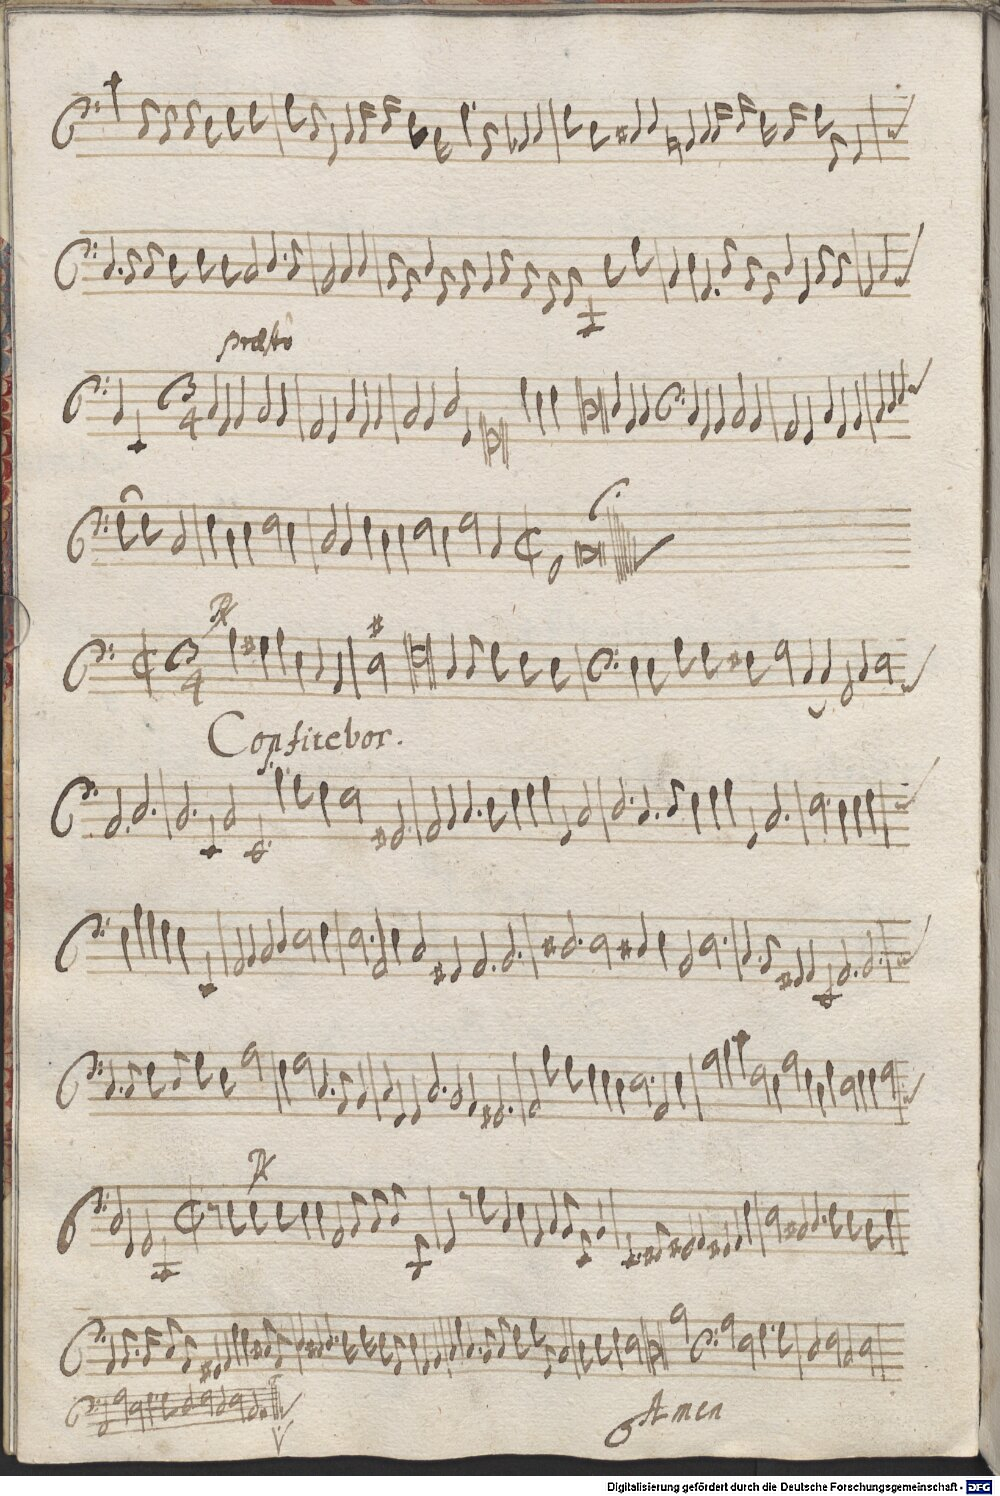 præsto
3
4
3
4
Confitebor.
Amen
Digitalisierung gefördert durch die Deutsche Forschungsgemeinschaft - DFG